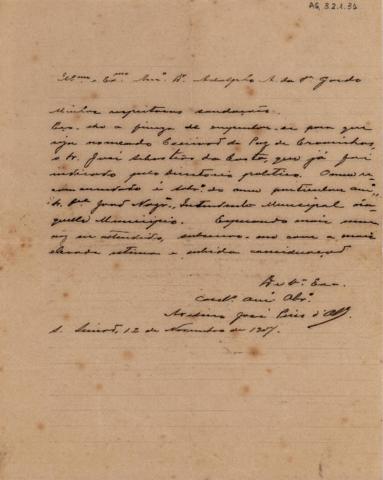 AG. 3.2.1.34
Illmo. e Exmo. Snr. Dr. Adolpho A. da Sa. Gordo
Minhas respeitosas saudações.
a fineza de empenhar-se para que
seja nomeado Escrivão de Paz de
o Sr. José Sebastião da Costa, que já foi
indicado pelo Directorio politico. O meu re-
commendado é sobro. do meu particular amo.
Intendente Municipal da-
quelle Municipio. Esperando mais uma
vez ser attendido, subscrevo-me com a mais
elevada estima e subida consideração
De V. Exa.
Amo. Obro.
José Pires
12 de Novembro de 1907.